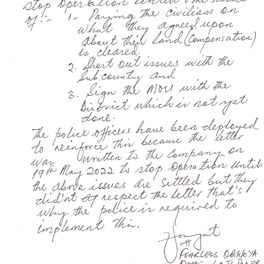 stop operation
of:- 1- Paying the civilians on
what they agreed upon
about their land (Compensation)
is cleared.
2. Short out issues with the
Subcounty and
3. Sign the MOU with the
District which is not yet
done.
The police officers have been deployed
to reinforce this because the letter
was written to the Company on
19th May 2022 to stop operation until
the above issues are settled but they
didn't respect the letter that's
why the police is required to
implement this.
FEARLESS OBWOYA